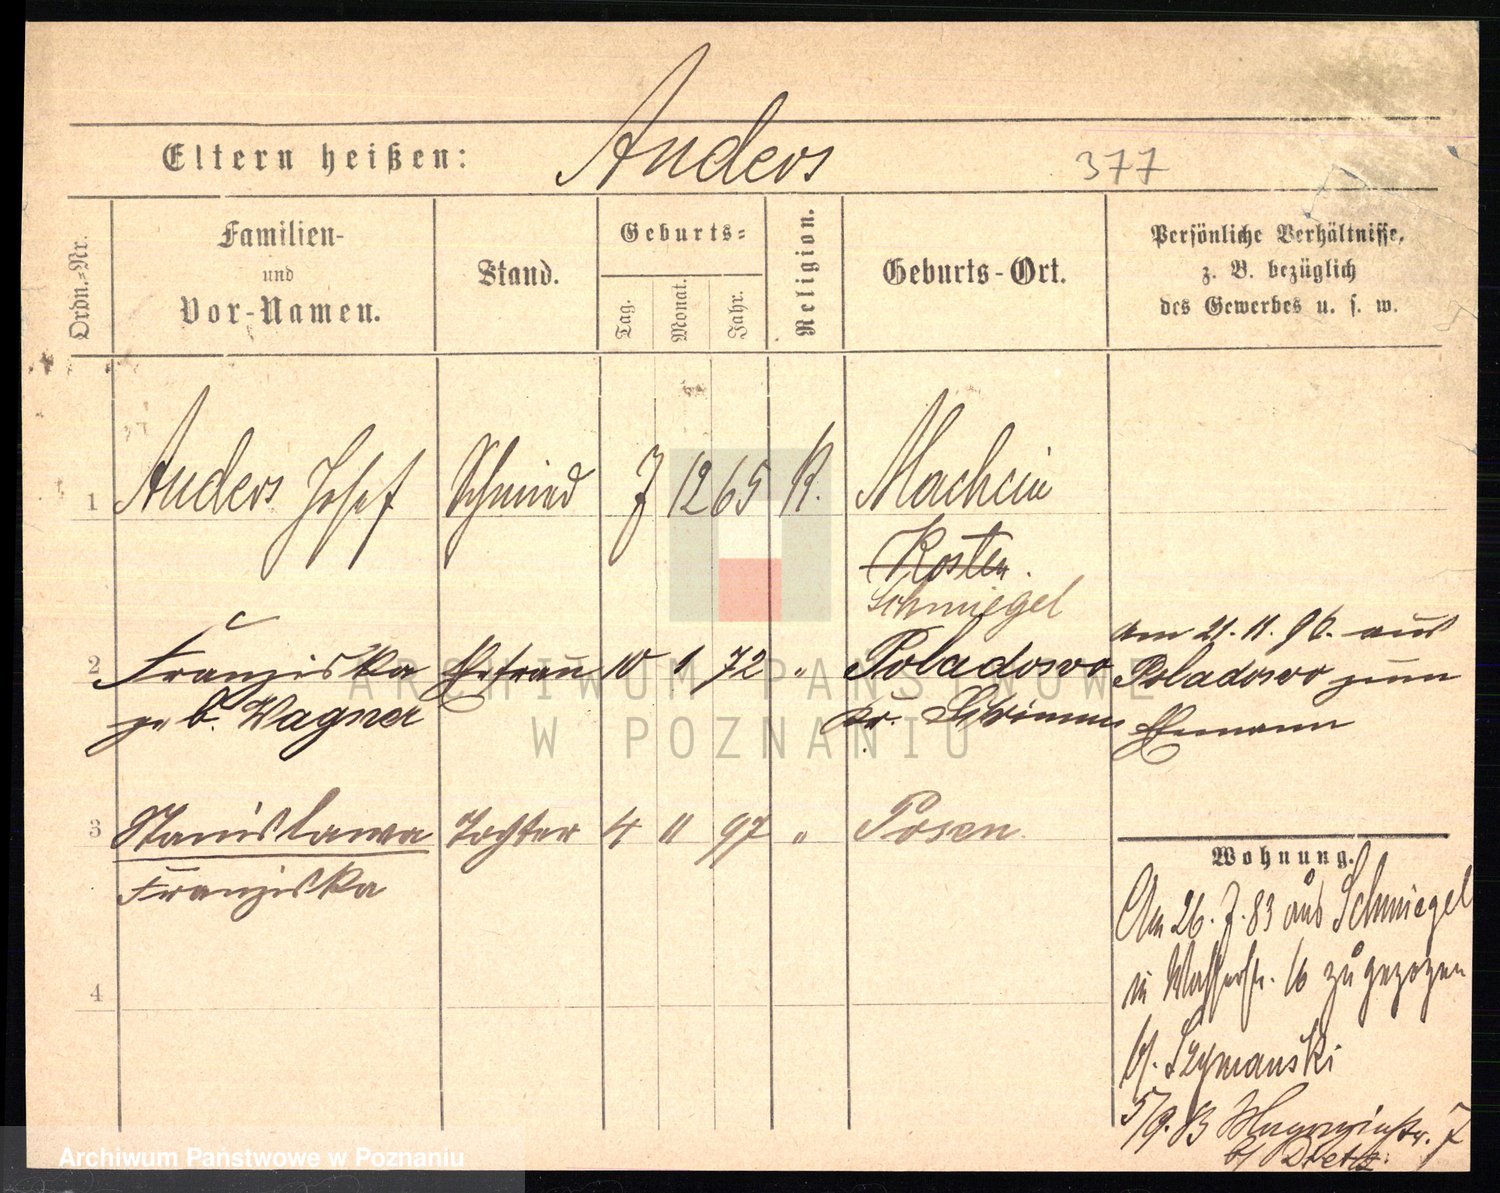 Anders
Eltern heißen:
377
Ordn.-Nr.
Familien-
und
Vor-Namen.
Stand.
Geburts-
Tag.
Monat.
Jahr.
Religion.
Geburts-Ort.
Persönliche Verhältnisse,
z. B. bezüglich
des Gewerbes u. s. w.
1 Anders Josef Schmied 7 12 65 K. Machcin
Kosten.
Schmiegel
2 Franziska Ehefrau 10 1 72 " Poladowo
geb. Wagner Kr. Schrimm
am 21. 11. 96. aus
Poladowo zum
Ehemann
3 Stanislawa Tochter 4 11 97 " Posen
Franziska
4
Wohnung.
Am 26. 7. 83 aus Schmiegel
in Wasserstr. 16 zugezogen
b/. Szymanski
5/9. 83 Magazinstr. 7
b/
ARCHIWUM PAŃSTWOWE
W POZNANIU
Archiwum Państwowe w Poznaniu